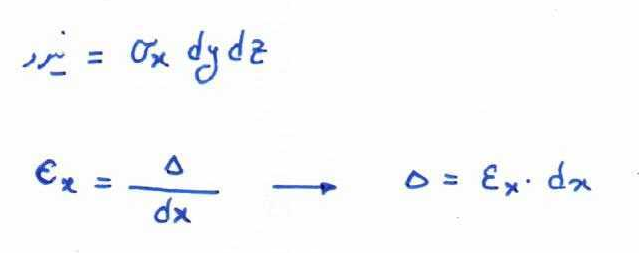 نیرو = σx dy dz
εx = Δ / dx → Δ = εx · dx